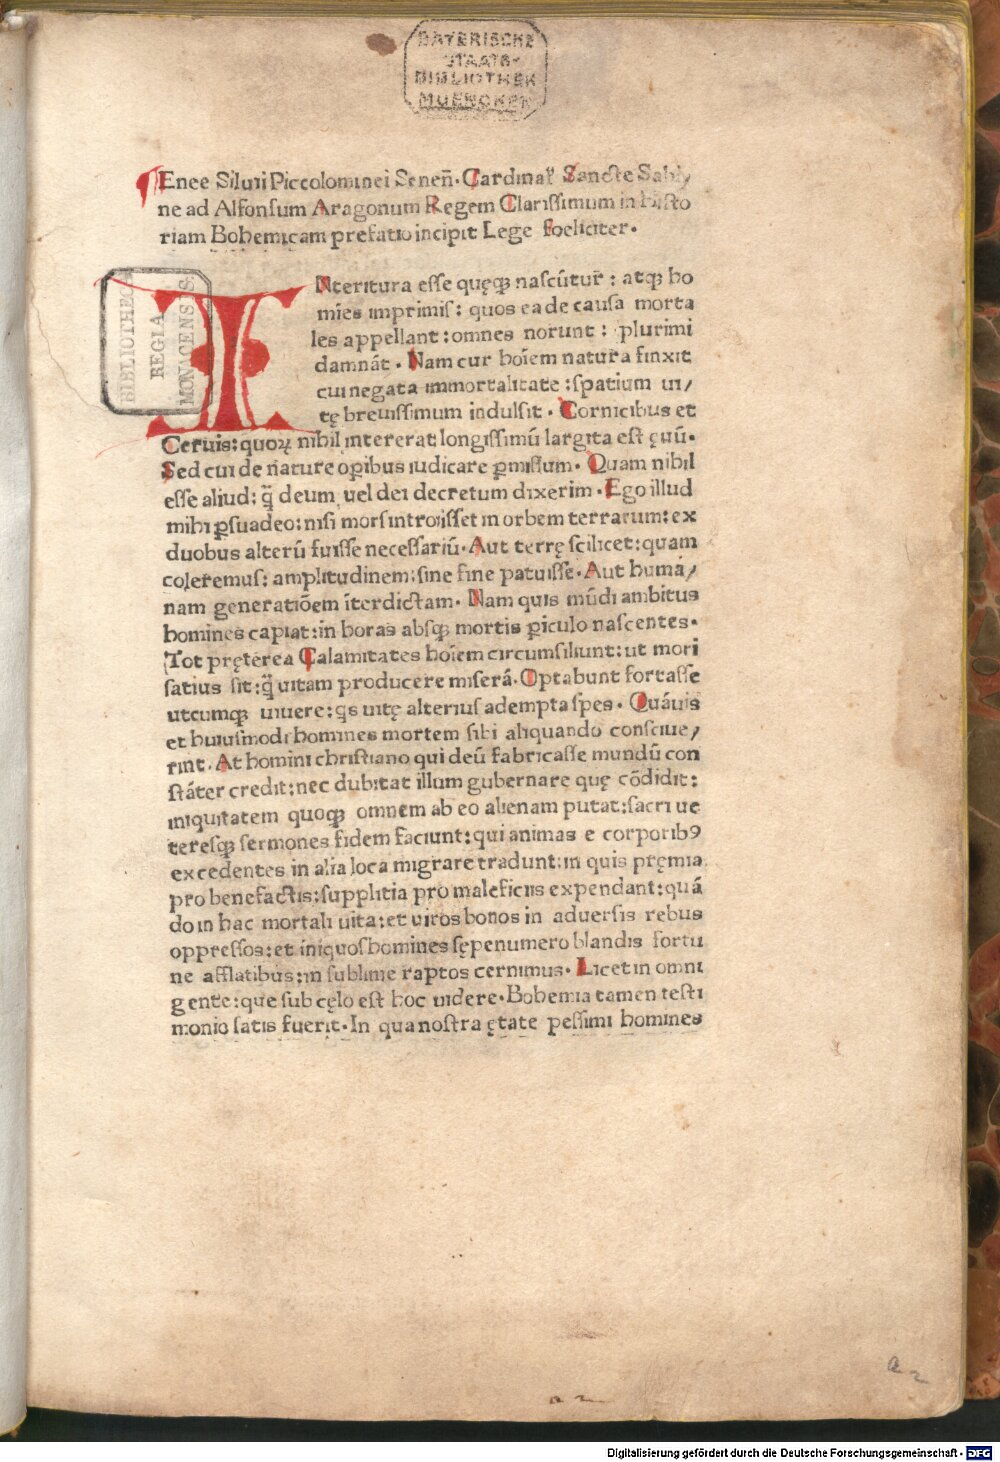 BAYERISCHE
STAATS-
BIBLIOTHEK
MUENCHEN
Enee Siluii Piccolominei Seneñ. Cardinal̃ Sancte Sabi/
ne ad Alfonsum Aragonum Regem Clarissimum in histo
riam Bohemicam prefatio incipit Lege foeliciter.
BIBLIOTHECA
REGIA
MONACENSIS.
INteritura esse quęqꝫ nascũtur : atqꝫ ho
mĩes imprimis : quos eade causa morta
les appellant : omnes norunt : plurimi
damnãt . Nam cur hoĩem natura finxit
cui negata immortalitate : spatium ui/
tę breuissimum indulsit . Cornicibus et
Ceruis: quoꝝ nihil intererat longissimũ largita est ęuũ.
Sed cui de nature oꝑibus iudicare ꝑmissum. Quam nihil
esse aliud: q̃ deum uel dei decretum dixerim . Ego illud
mihi ꝑsuadeo: nisi mors introisset in orbem terrarum: ex
duobus alterũ fuisse necessariũ. Aut terrę scilicet: quam
coleremus: amplitudinem: sine fine patuisse. Aut huma/
nam generatiõem ĩterdictam. Nam quis mũdi ambitus
homines capiat: in horas absqꝫ mortis ꝑiculo nascentes.
Tot pręterea Calamitates hoĩem circumsiliunt: ut mori
satius sit: q̃ uitam producere miserã. Optabunt fortasse
utcumqꝫ uiuere: qs uitę alterius adempta spes. Quãuis
et huiusmodi homines mortem sibi aliquando consciue/
rint. At homini christiano qui deũ fabricasse mundũ con
stãter credit: nec dubitat illum gubernare quę cõdidit:
iniquitatem quoqꝫ omnem ab eo alienam putat: sacri ue
teresqꝫ sermones fidem faciunt: qui animas e corporibꝰ
excedentes in alia loca migrare tradunt: in quis pręmia
pro benefactis: supplitia pro maleficiis expendant: quã
do in hac mortali uita: et uiros bonos in aduersis rebus
oppressos: et iniquos homines sępenumero blandis fortu
ne afflatibus: in sublime raptos cernimus. Licet in omni
gente: que sub cęlo est hoc uidere. Bohemia tamen testi
monio satis fuerit. In qua nostra ętate pessimi homines
a 2
a 2
Digitalisierung gefördert durch die Deutsche Forschungsgemeinschaft - DFG